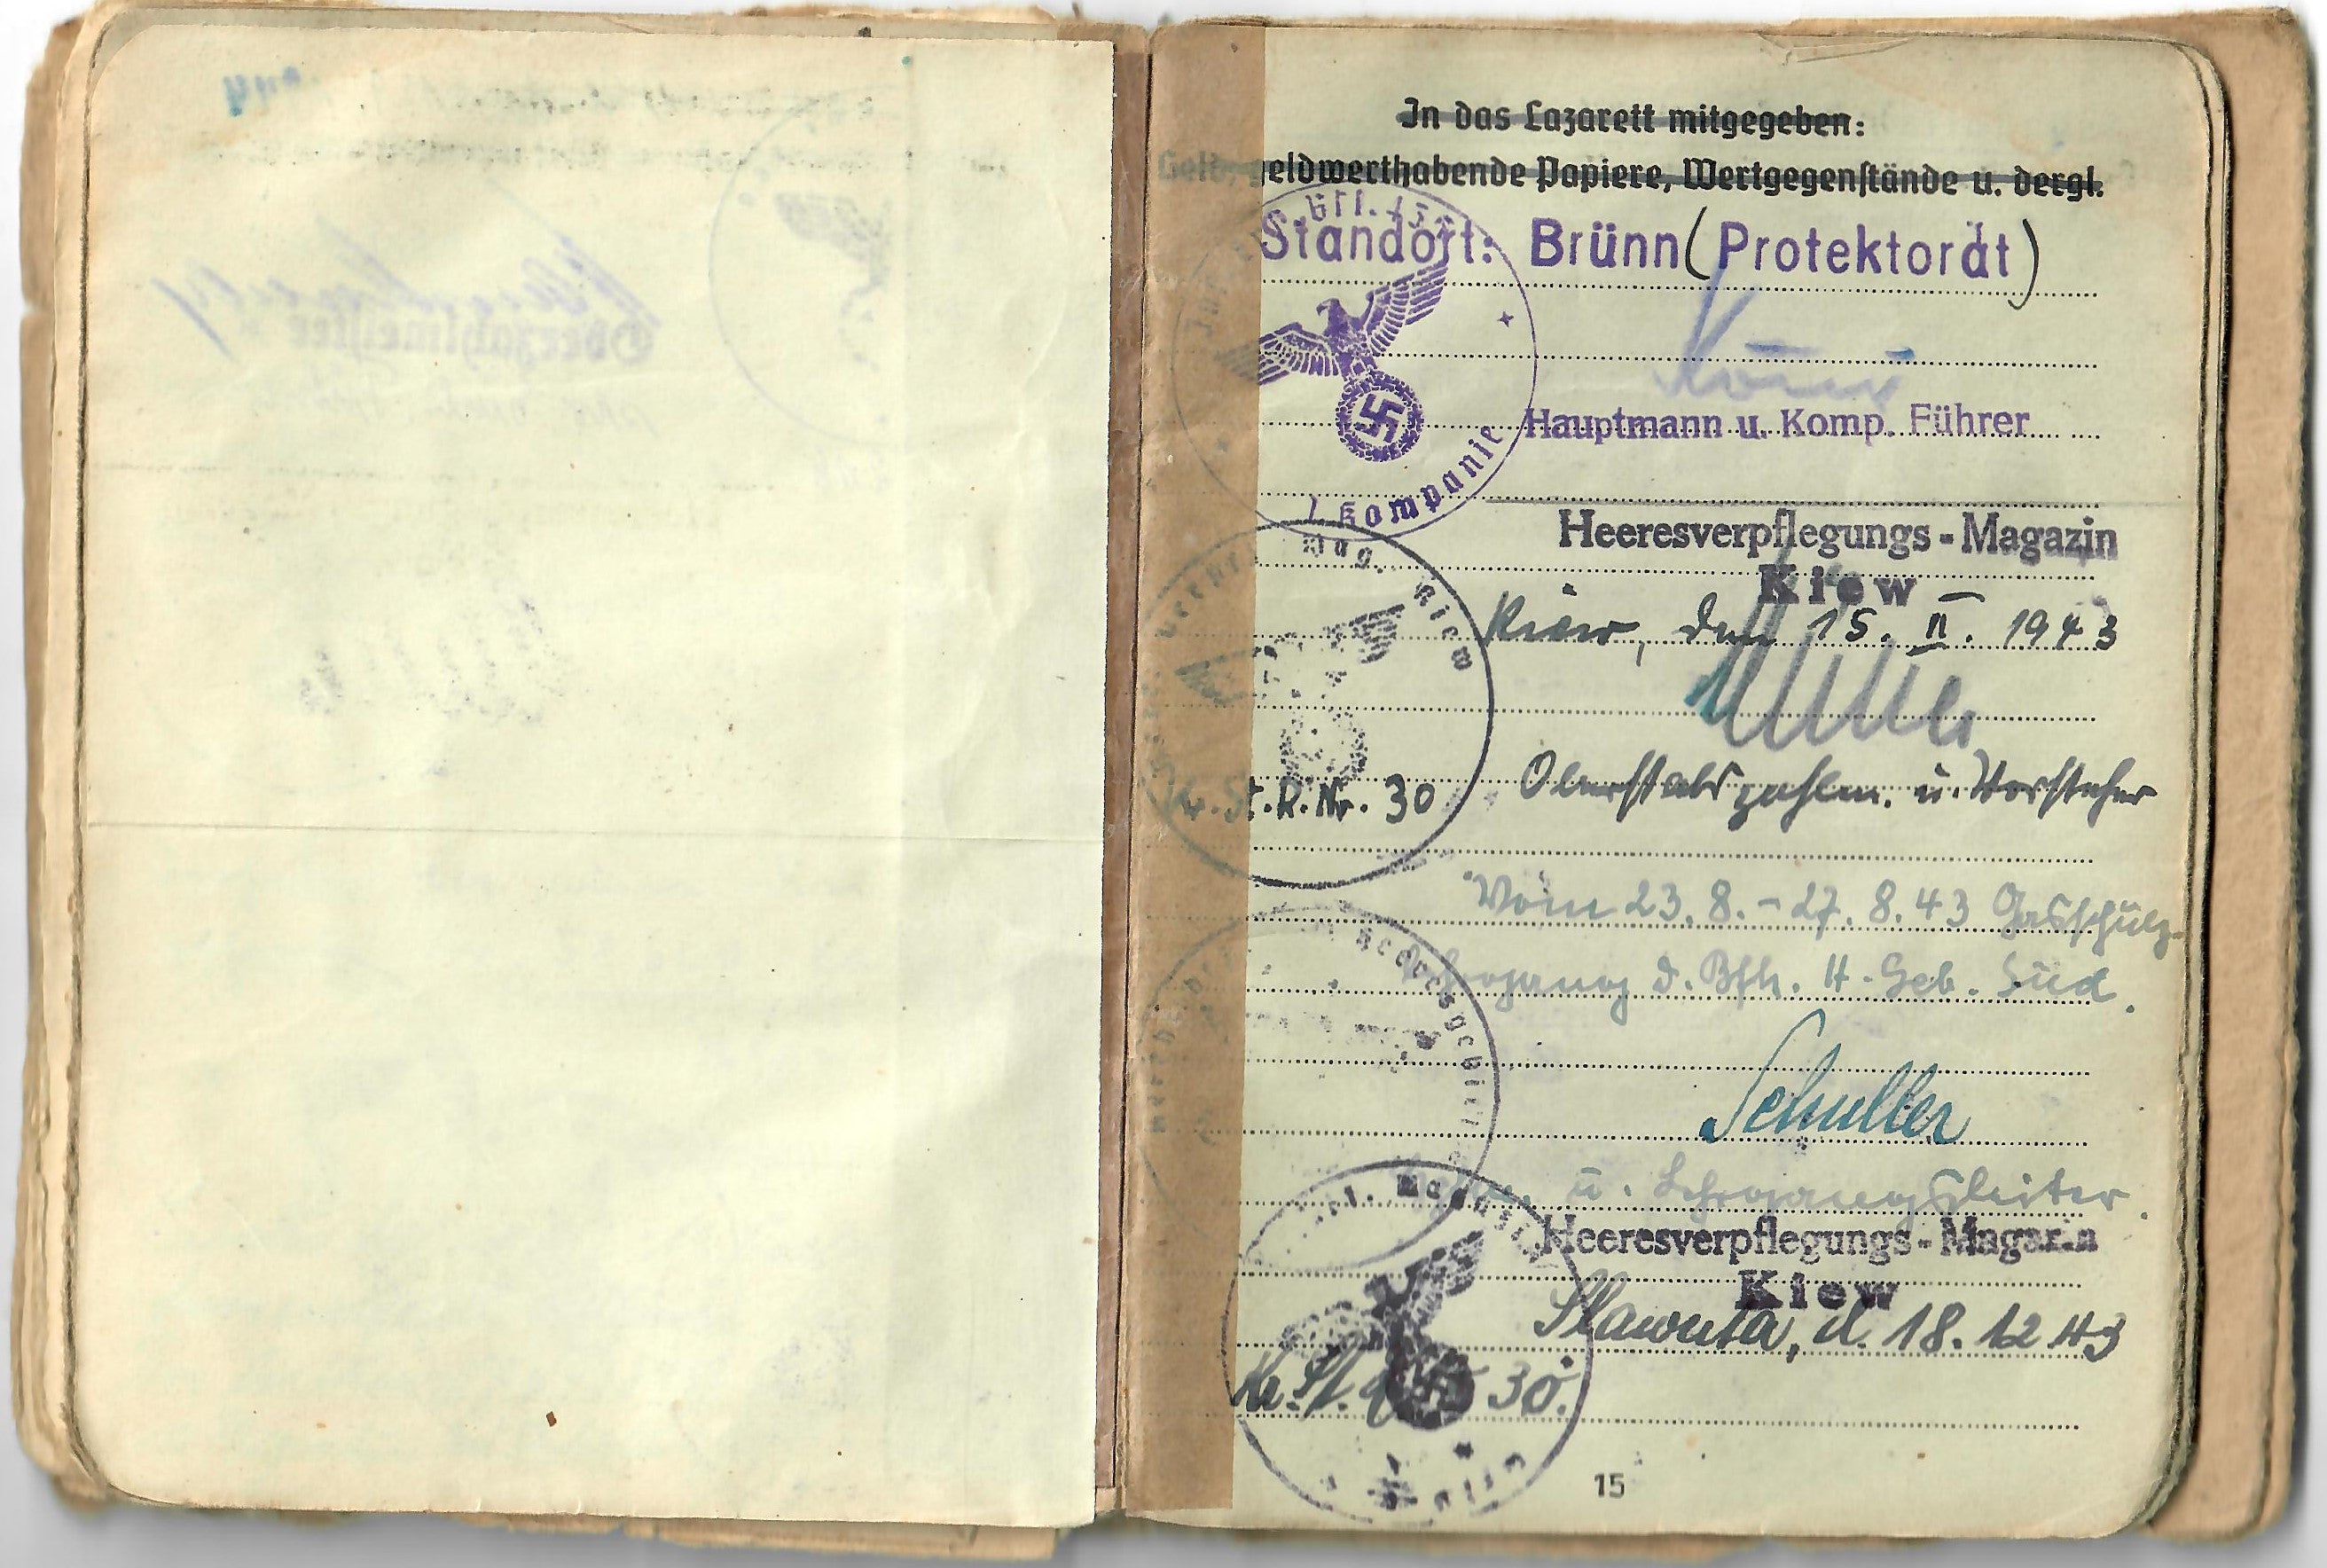 In das Lazarett mitgegeben:
Geld, geldwerthabende Papiere, Wertgegenstände u. dergl.
Standort: Brünn (Protektorat)
Hauptmann u. Komp. Führer
1 Kompanie
Heeresverpflegungs-Magazin
Kiew
Mag. Kiew
Kiew, den 15. II. 1943
K. St. R. Nr. 30
Oberstabszahlm. u. Vorsteher
Vom 23. 8. - 27. 8. 43 Gasschutz-
Lehrgang d. Bfh. H. Geb. Süd.
Heeresgebiet
Schuller
u. Lehrgangsleiter.
Heeresverpflegungs-Magazin
Kiew
Slawuta, d. 18. 12 43
30.
15
Oberzahlmeister